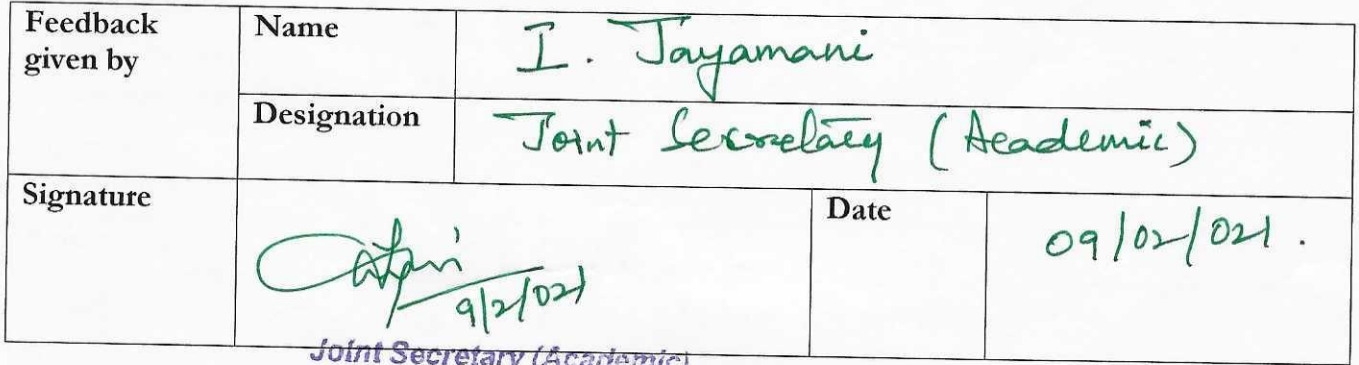 Feedback given by
Name
I. Jayamani
Designation
Joint Secretary (Academic)
Signature
9/2/021
Date
09/02/021.
Joint Secretary (Academic)